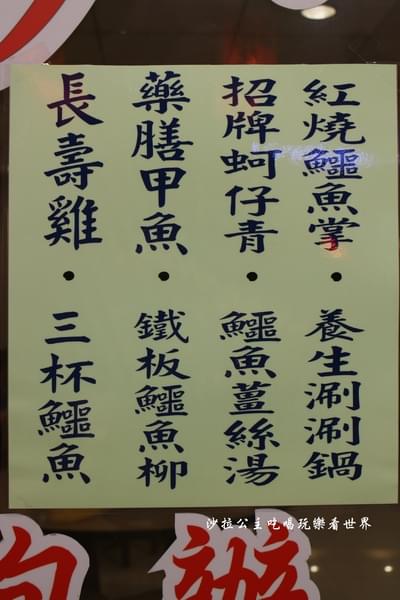 紅燒鱷魚掌・養生涮涮鍋
招牌蚵仔青・鱷魚薑絲湯
藥膳甲魚・鐵板鱷魚柳
長壽雞・三杯鱷魚
沙拉公主吃喝玩樂看世界
辦